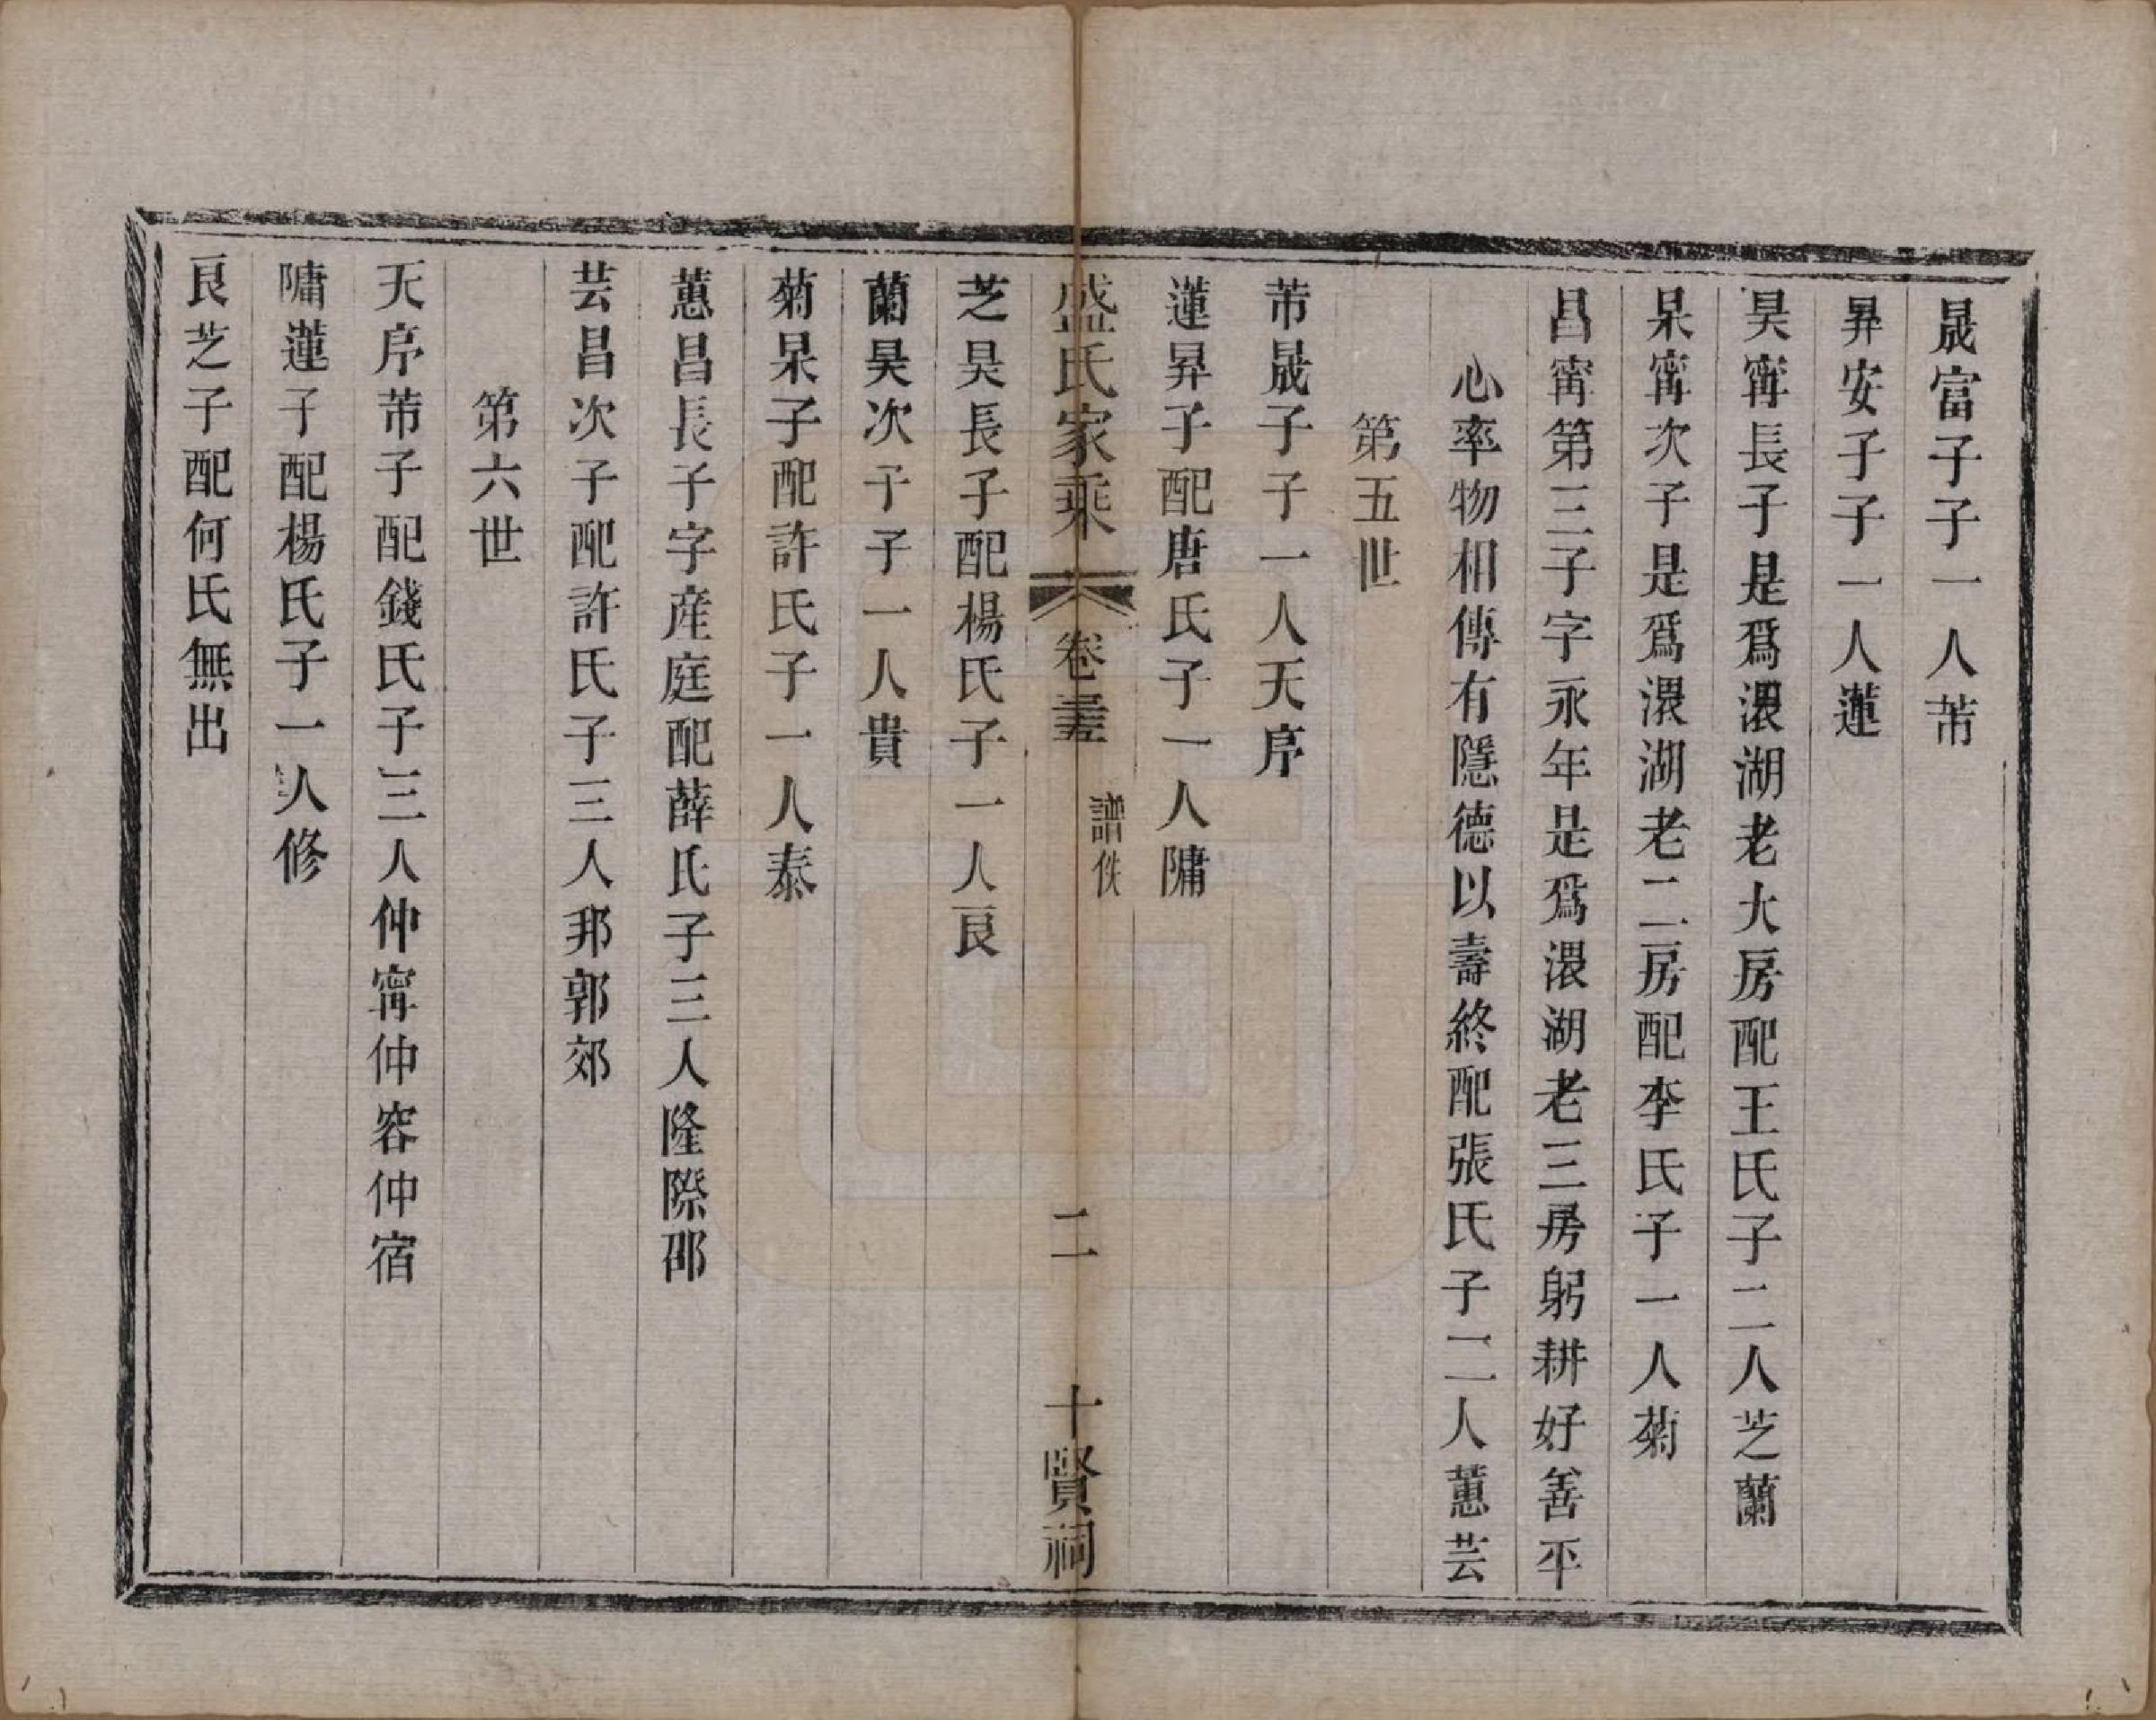 晟富子子一人芾
昇安子子一人蓮
昊寗長子是爲𣽂湖老大房配王氏子二人芝蘭
杲寗次子是爲𣽂湖老二房配李氏子一人菊
昌寗第三子字永年是爲𣽂湖老三房躬耕好善平
心率物相傳有隱德以壽終配張氏子二人蕙芸
第五世
芾晟子子一人天序
蓮昇子配唐氏子一人隯
盛氏家乘 卷 譜佚 二 十賢祠
芝昊長子配楊氏子一人良
蘭昊次子子一人貴
菊杲子配許氏子一人泰
蕙昌長子字産庭配薛氏子三人隆際邵
芸昌次子配許氏子三人邦郭郊
第六世
天序芾子配錢氏子三人仲寗仲容仲宿
蓮子配楊氏子一人修
良芝子配何氏無出